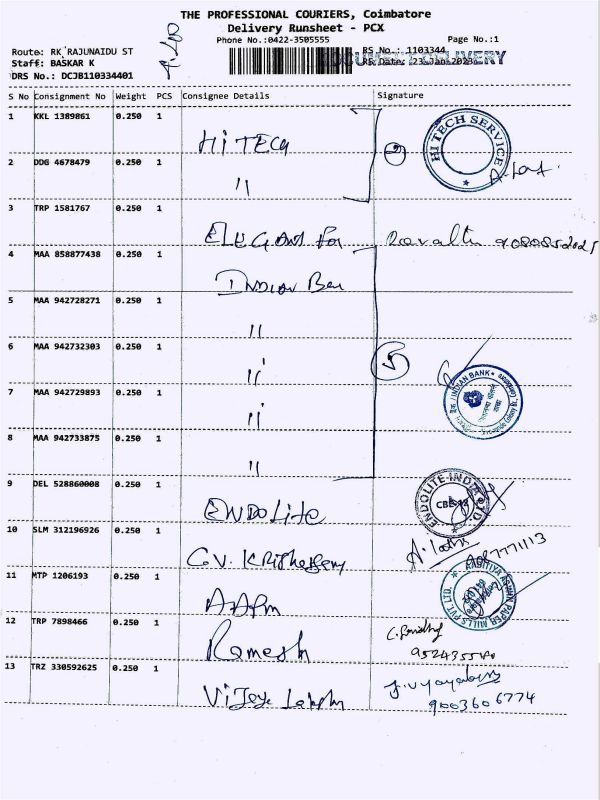 THE PROFESSIONAL COURIERS, Coimbatore
Delivery Runsheet - PCX
Phone No.:0422-3505555 Page No.:1
Route: RK RAJUNAIDU ST RS No.: 1103344
Staff: BASKAR K RS Date: 23 Jan 2023
DRS No.: DCJB110334401
S No Consignment No Weight PCS Consignee Details Signature
1 KKL 1389861 0.250 1 Hi TECH
HI TECH SERVICE
2 DDG 4678479 0.250 1 "
3 TRP 1581767 0.250 1 ELEGANT
4 MAA 858877438 0.250 1 INDIAN
5 MAA 942728271 0.250 1 "
6 MAA 942732303 0.250 1 "
5
7 MAA 942729893 0.250 1 "
INDIAN BANK
8 MAA 942733875 0.250 1 "
9 DEL 528860008 0.250 1 ENDOLite
ENDOLITE INDIA LTD.
10 SLM 312196926 0.250 1 G.V.
11 MTP 1206193 0.250 1
PAPER MILLS PVT. LTD.
12 TRP 7898466 0.250 1 Ramesh
13 TRZ 330592625 0.250 1 Vijaya
9003606774